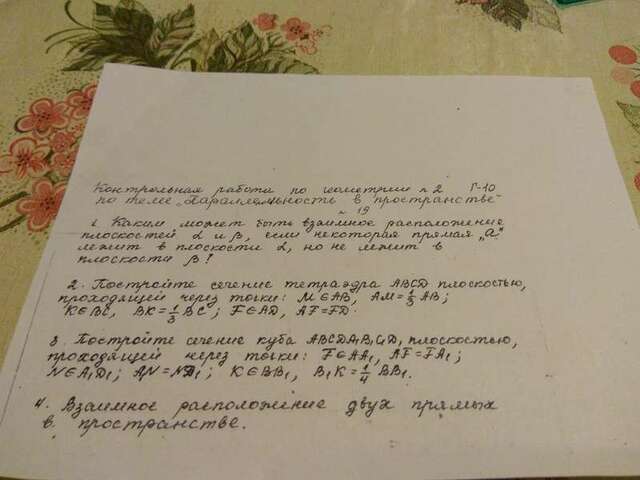 Контрольная работа по геометрии №2 Г-10
по теме „Параллельность в пространстве"
№ 19
1. Каким может быть взаимное расположение
плоскостей α и β, если некоторая прямая „a"
лежит в плоскости α, но не лежит в
плоскости β?
2. Постройте сечение тетраэдра ABCD плоскостью,
проходящей через точки: M∈AB, AM=1/3 AB;
K∈BC, BK=1/3 BC; F∈AD, AF=FD.
3. Постройте сечение куба ABCDA₁B₁C₁D₁ плоскостью,
проходящей через точки: F∈AA₁, AF=FA₁;
N∈A₁D₁; A₁N=ND₁; K∈BB₁, B₁K=1/4 BB₁.
4. Взаимное расположение двух прямых
в пространстве.